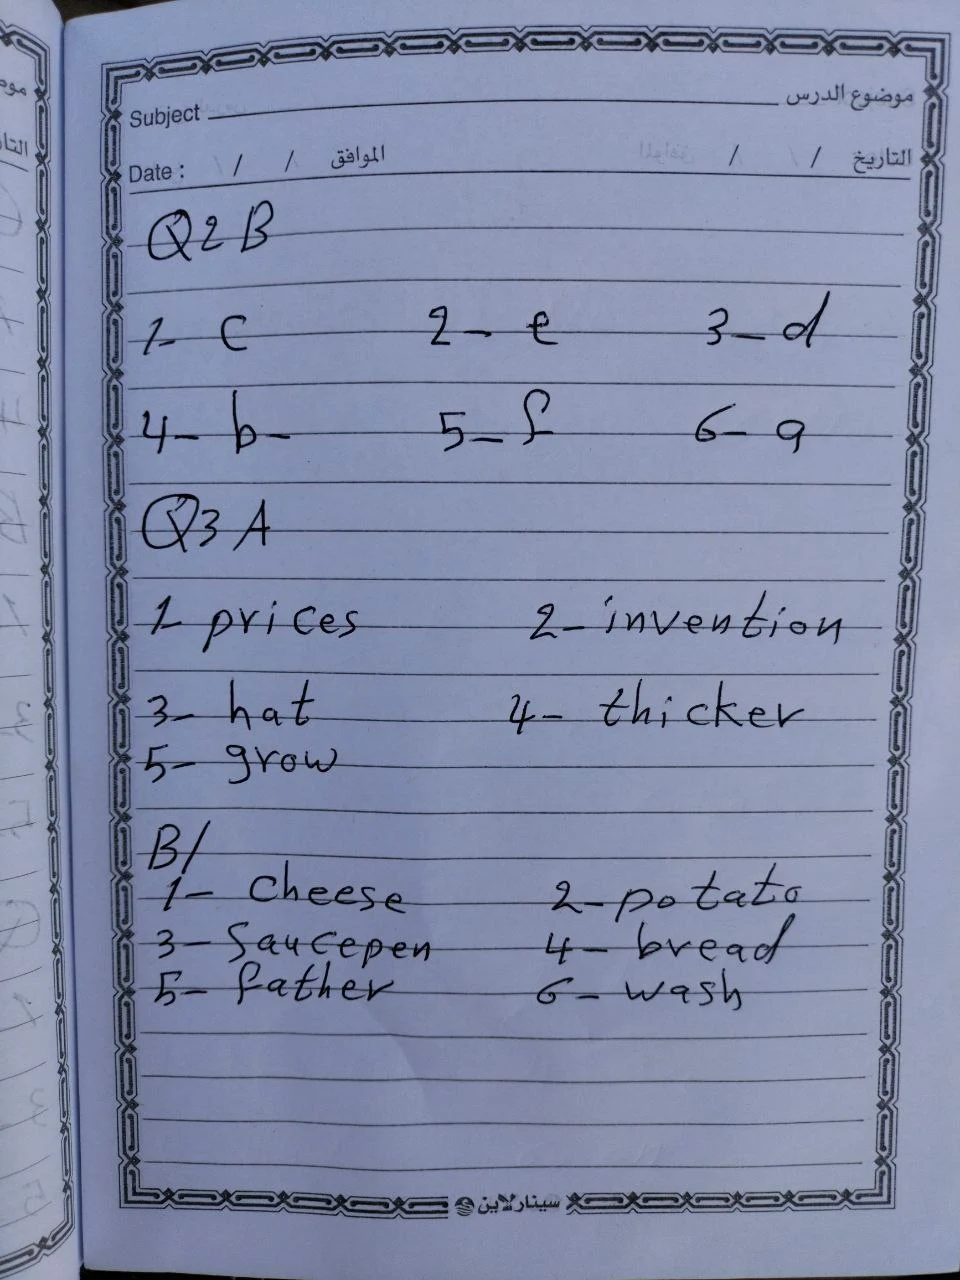 Subject موضوع الدرس
Date : / / الموافق / / التاريخ
Q2B
1- c 2- e 3- d
4- b- 5- f 6- a
Q3 A
1 prices 2- invention
3- hat 4- thicker
5- grow
B/
1- cheese 2- potato
3- Saucepen 4- bread
5- father 6- wash
سينارلاين